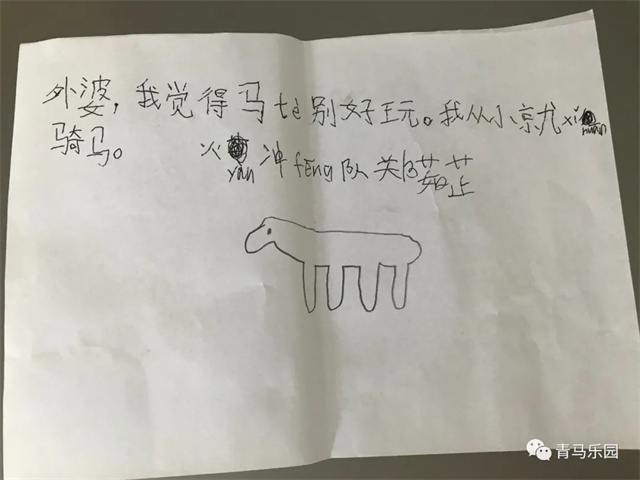 外婆，我觉得马tè别好玩。我从小京尤xǐ huān
骑马。 火yàn冲fēng队 关茹芷
青马乐园